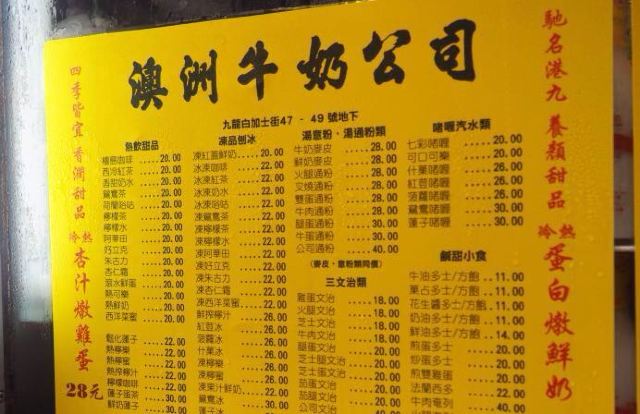 澳洲牛奶公司
九龍白加士街47 - 49號地下
四季皆宜 香潤甜品
冷熱 杏汁燉雞蛋
28元
熱飲甜品
西冷紅茶 20.00
香甜奶水 20.00
鴛鴦茶 20.00
檸檬茶 20.00
檸檬水 20.00
阿華田 20.00
好立克 20.00
朱古力 20.00
杏仁霜 20.00
滾水鮮蛋 20.00
熱可樂 20.00
熱鮮奶 20.00
西洋菜蜜 20.00
鬆化蓮子 22.00
熱檸樂 22.00
熱檸蜜 22.00
檸檬咖啡 26.00
蓮子蛋茶 30.00
鮮奶蓮子 30.00
凍品刨冰
凍紅薑鮮奶 20.00
冰凍咖啡 22.00
冰凍紅茶 22.00
冰凍奶水 22.00
凍鴛鴦茶 22.00
凍檸檬茶 22.00
凍檸檬水 22.00
凍阿華田 22.00
凍好立克 22.00
凍朱古力 22.00
凍杏仁霜 22.00
凍西洋菜蜜 22.00
鮮搾檸汁 26.00
紅荳冰 26.00
菠蘿冰 26.00
什菓冰 26.00
凍檸樂 26.00
凍檸蜜 26.00
凍杏汁鮮奶 22.00
湯意粉·湯通粉類
牛奶麥皮 28.00
鮮奶麥皮 28.00
火腿通粉 28.00
叉燒通粉 28.00
雙蛋通粉 28.00
牛肉通粉 28.00
腿蛋通粉 30.00
牛蛋通粉 30.00
公司通粉 40.00
(麥皮·意粉類同價)
三文治類
雞蛋文治 18.00
火腿文治 18.00
芝士文治 18.00
牛肉文治 18.00
腿蛋文治 20.00
芝士腿文治 20.00
芝士蛋文治 20.00
茄蛋文治 20.00
牛蛋文治 20.00
公司文治 40.00
啫喱汽水類
七彩啫喱 20.00
可口可樂 20.00
什菓啫喱 26.00
紅荳啫喱 26.00
菠蘿啫喱 26.00
鴛鴦啫喱 30.00
蓮子啫喱 30.00
鹹甜小食
牛油多士/方飽 11.00
菓占多士/方飽 11.00
花生醬多士/方飽 11.00
奶油多士/方飽 11.00
鮮油多士/方飽 14.00
煎蛋多士 20.00
炒蛋多士 20.00
煎雙雞蛋 20.00
法蘭西多士 22.00
牛肉奄列 40.00
馳名港九 養顏甜品
冷熱 蛋白燉鮮奶